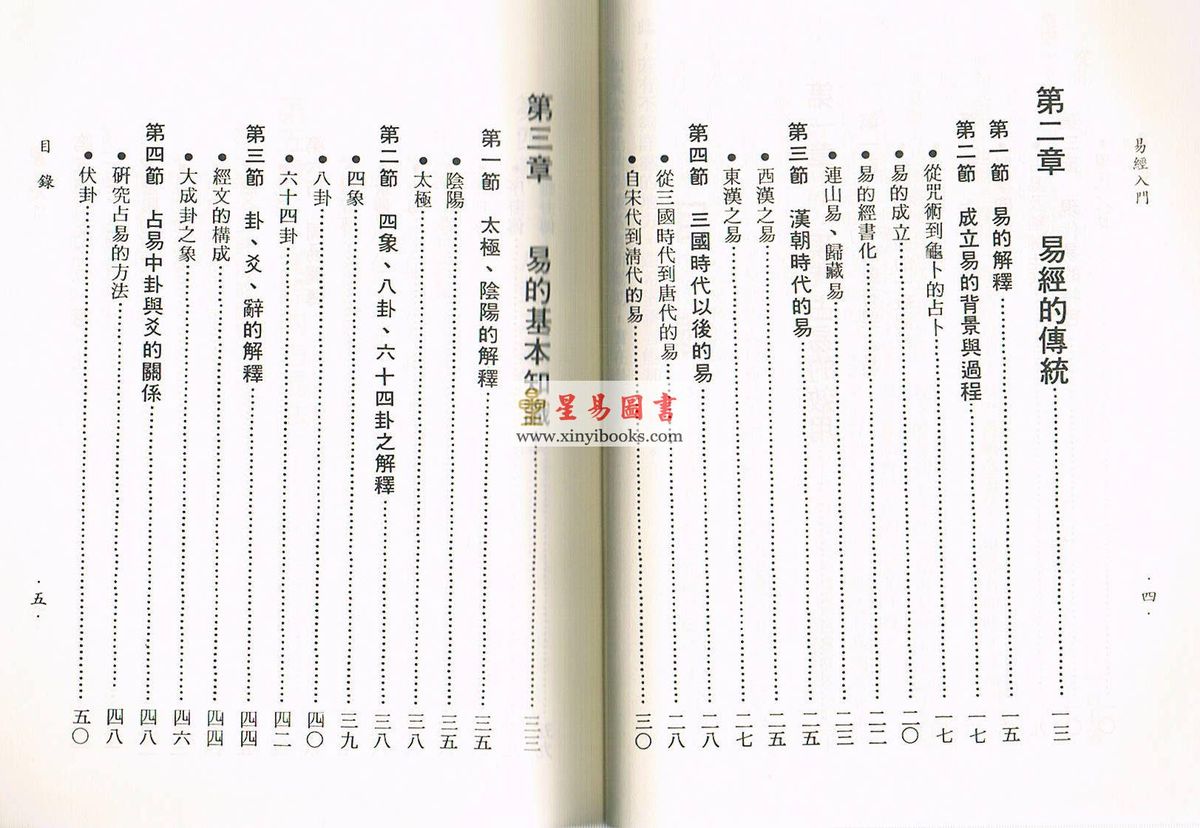 易經入門
·四·
第二章 易經的傳統……一三
第一節 易的解釋……一五
第二節 成立易的背景與過程……一七
●從咒術到龜卜的占卜……一七
●易的成立……二〇
●易的經書化……二二
●連山易、歸藏易……二三
第三節 漢朝時代的易……二五
●西漢之易……二五
●東漢之易……二七
第四節 三國時代以後的易……二八
●從三國時代到唐代的易……二八
●自宋代到清代的易……三〇
第三章 易的基本知識……三三
第一節 太極、陰陽的解釋……三五
●陰陽……三五
●太極……三八
第二節 四象、八卦、六十四卦之解釋……三八
●四象……三九
●八卦……四〇
●六十四卦……四二
第三節 卦、爻、辭的解釋……四四
●經文的構成……四四
●大成卦之象……四六
第四節 占易中卦與爻的關係……四八
●研究占易的方法……四八
●伏卦……五〇
目錄
·五·
星易圖書
www.xinyibooks.com